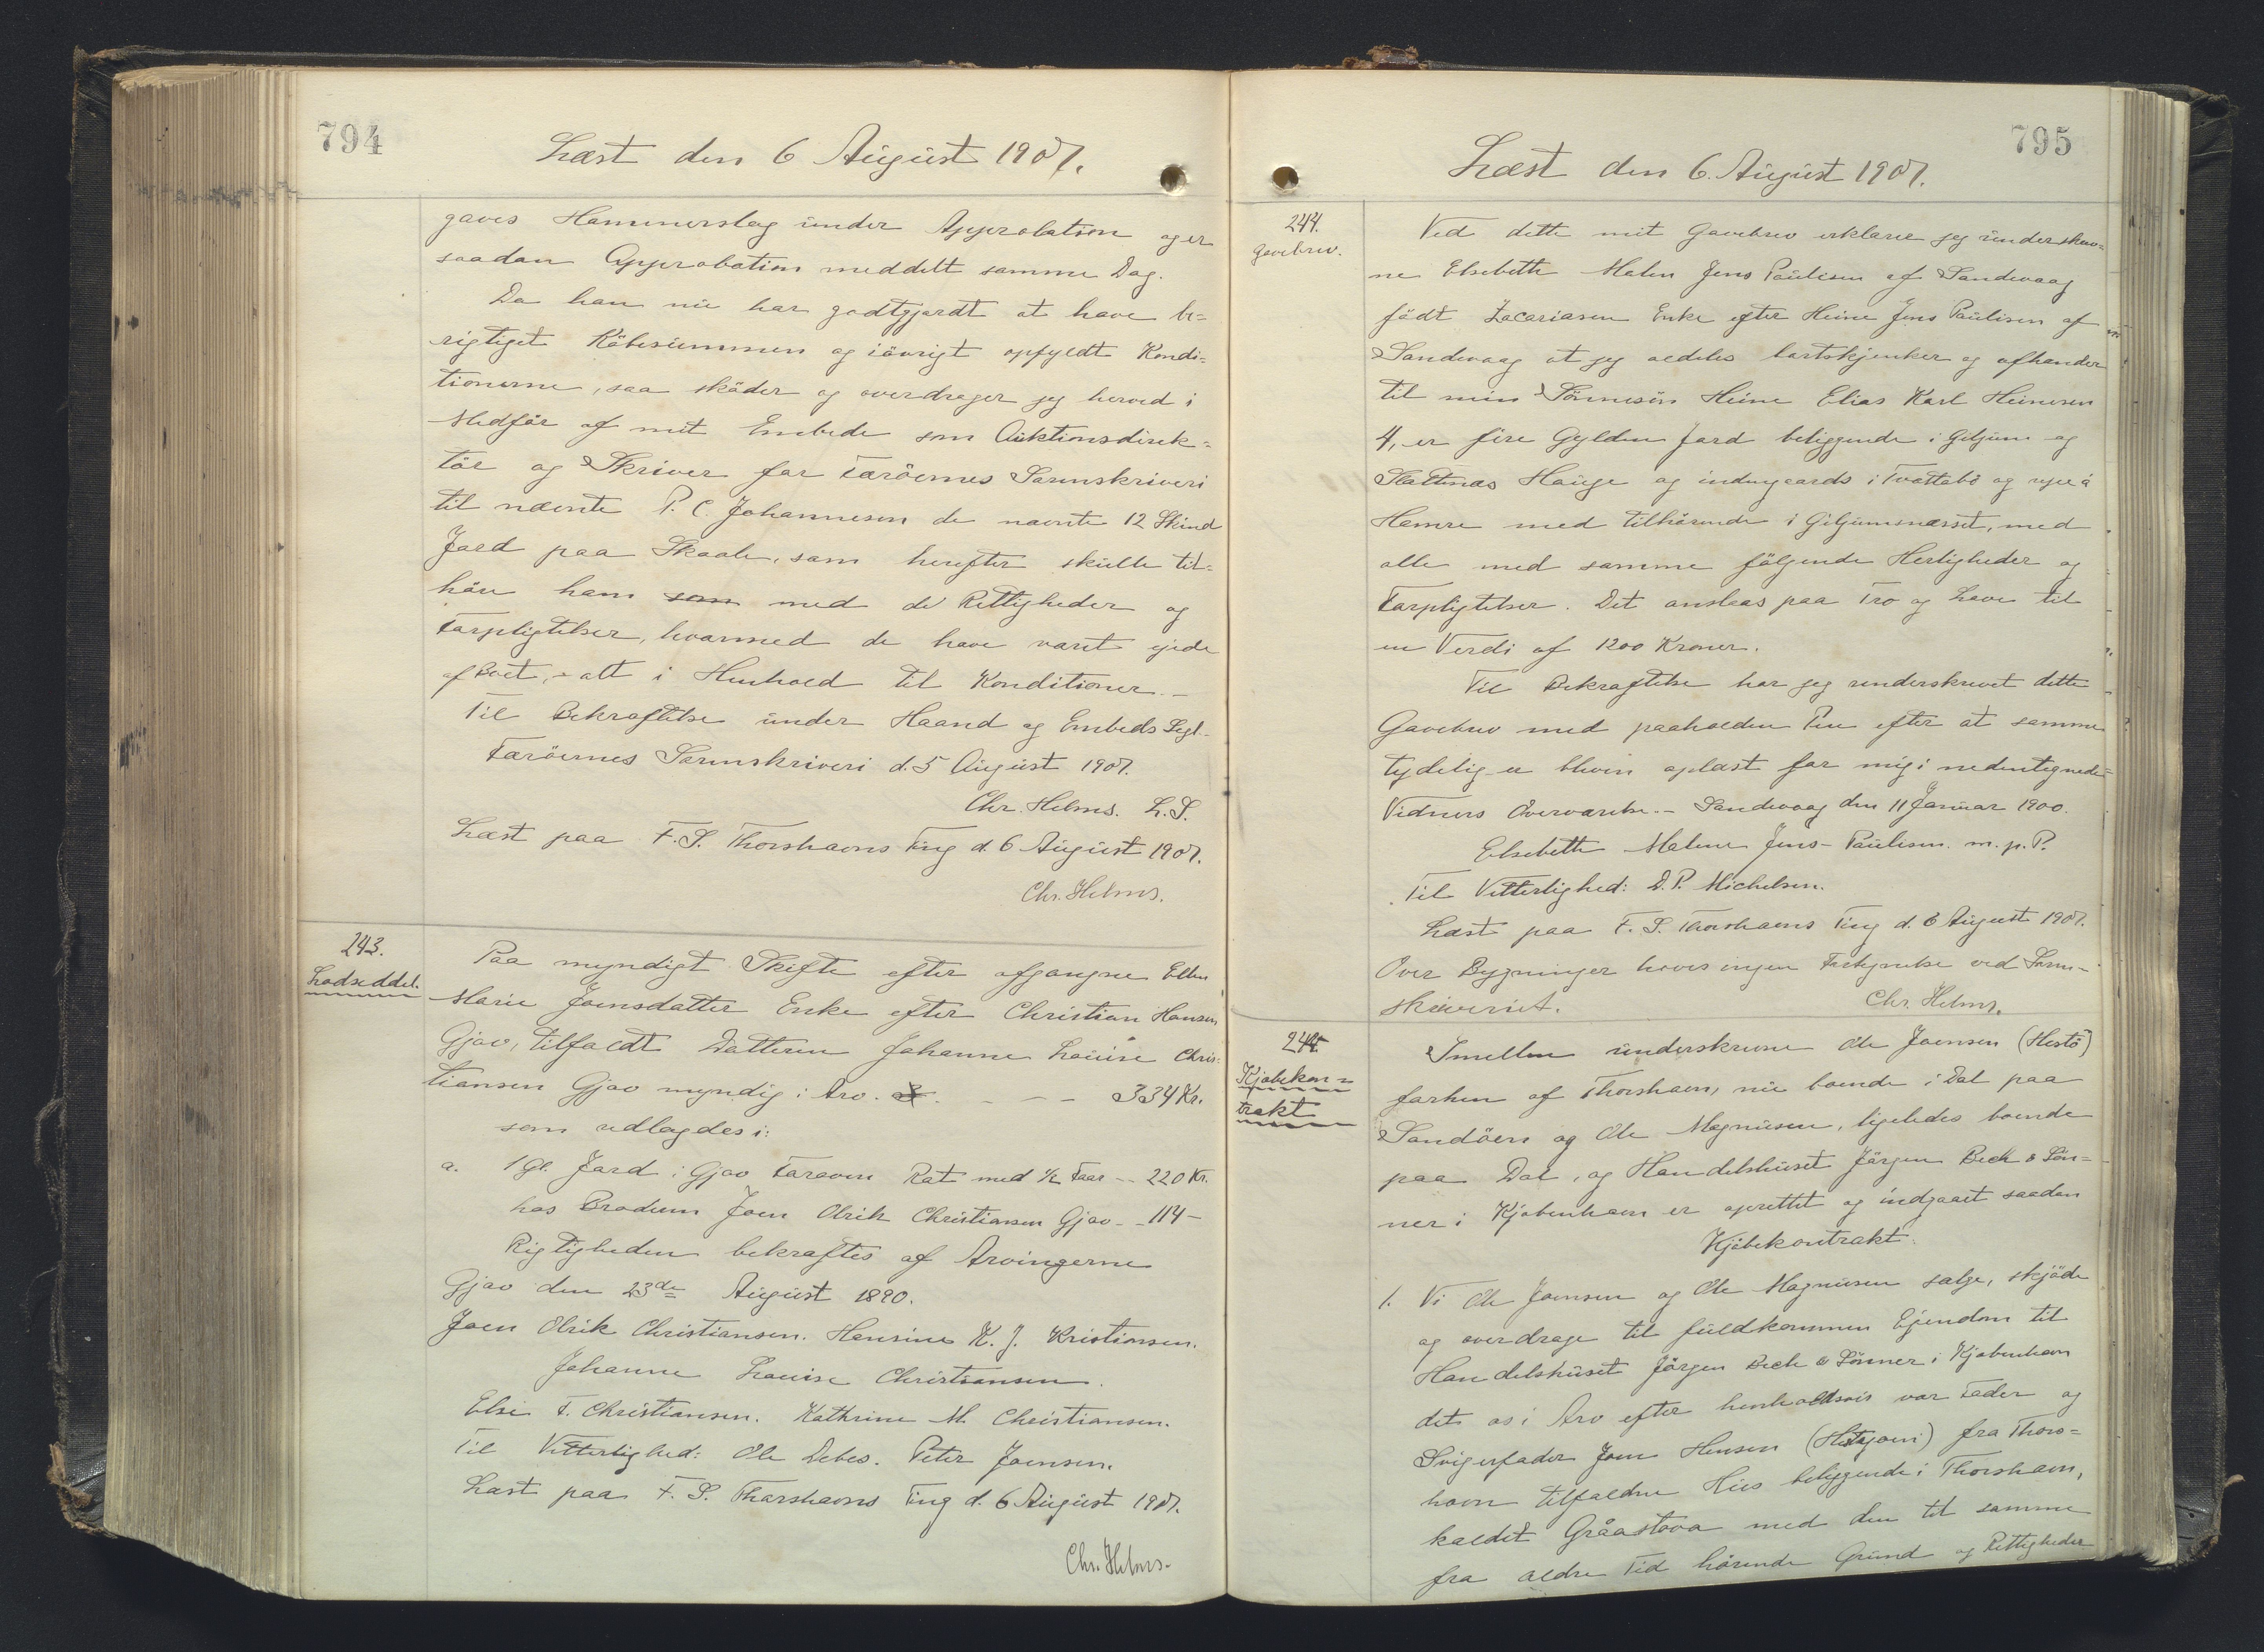 794
Læst den 6 August 1907.
gaves Hammerslag under Approbation og er
saadan Approbation meddelt samme Dag.
Da han nu har godtgjordt at have be=
rigtiget Købesummen og iøvrigt opfyldt Kondi=
tionerne, saa skøder og overdrager jeg herved i
Medfør af mit Embede som Auktionsdirek=
tør og Skriver for Færøernes Sorenskriveri
til nævnte P. C. Johannesen de nævnte 12 Skind
Jord paa Skaale, som herefter skulle til=
høre ham som med de Rettigheder og
Forpligtelser, hvormed de have været ejede
af Boet, - alt i Henhold til Konditioner. -
Til Bekræftelse under Haand og Embeds Segl.
Færøernes Sorenskriveri d. 5 August 1907.
Chr. Helms. L.S.
Læst paa F.S. Thorshavns Ting d. 6 August 1907.
Chr. Helms.
243.
Lodseddel.
Paa myndigt Skifte efter afgangne Ellen
Marie Joensdatter Enke efter Christian Hansen
Gjov, tilfaldt Datteren Johanne Louise Chris=
tiansen Gjov myndig i Arv. - - - 334 Kr.
som udlagdes i:
a. 1 Gl. Jord i Gjov Faroven Rat med ½ Faar - - 220 Kr.
hos Broderen Joen Olrik Christiansen Gjov - - 114 -
Rigtigheden bekræftes af Arvingerne
Gjov den 23de August 1890.
Joen Olrik Christiansen. Hansine K. J. Kristiansen.
Johanne Louise Christiansen.
Elsi F. Christiansen. Kathrine M. Christiansen.
Til Vitterlighed: Ole Debes. Peter Joensen.
Læst paa F.S. Thorshavns Ting d. 6 August 1907.
Chr. Helms.
795
Læst den 6. August 1907.
244.
Gavebrev.
Ved dette mit Gavebrev erklærer jeg underskrev=
ne Elsebeth Malen Jens Paulisen af Sandevaag
født Zacariasen Enke efter Heine Jens Paulisen af
Sandevaag at jeg aldeles bortskjenker og afhænder
til min Sønnesøn Heine Elias Karl Heinesen
4, er fire Gylden Jord beliggende i Giljum og
Slattnæs Hauge og indengaards i Tvøttebø og uppe á
Hamre med tilhørende i Giljumsnæsset, med
alle med samme følgende Herligheder og
Forpligtelser. Det anslaas paa Tro og Love til
en Verdi af 1200 Kroner.
Til Bekræftelse har jeg underskrevet dette
Gavebrev med paaholden Pen efter at samme
tydelig er bleven oplæst for mig i nedentegnede
Vidners Overværelse. - Sandevaag den 11 Januar 1900.
Elsebeth Malene Jens-Paulisen. m. p. P.
Til Vitterlighed: D. P. Michelsen.
Læst paa F. S. Thorshavns Ting d. 6 August 1907.
Over Bygninger haves ingen Fortegnelse ved Soren-
skriveriet. Chr. Helms.
245.
Kjøbekon=
trakt
Imellem underskrevne Ole Joensen (Hestø)
forhen af Thorshavn, nu boende i Dal paa
Sandøen og Ole Magnusen, ligeledes boende
paa Dal, og Handelshuset Jørgen Bech & Søn=
ner i Kjøbenhavn er oprettet og indgaaet saadan
Kjøbekontrakt.
1. Vi Ole Joensen og Ole Magnusen sælge, skjøde
og overdrage til fuldkommen Ejendom til
Handelshuset Jørgen Bech & Sønner i Kjøbenhavn
det os i Arv efter henholdsvis vor Fader og
Svigerfader Joen Hensen (Hestjoen) fra Thors=
havn tilfaldne Hus beliggende i Thorshavn,
kaldet Gråastova med den til samme
fra ældre Tid hørende Grund og Rettigheder